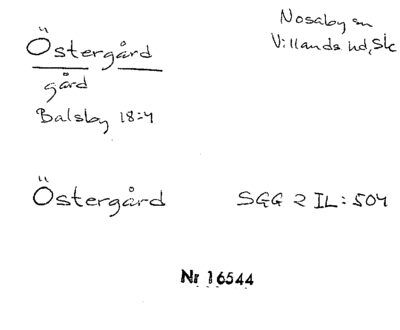 Östergård
gård
Balsby 18:4
Nosaby sn
Villands hd, Sk
Östergård
SGG 2 IL: 504
Nr 16544